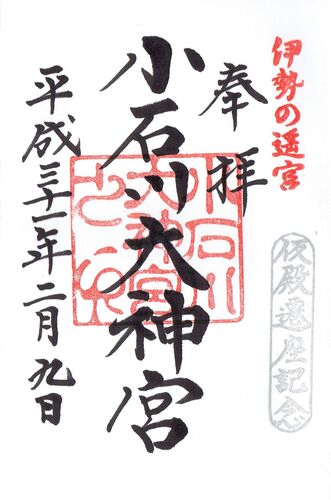 伊勢の遥宮
仮殿遷座記念
奉拝
小石川大神宮
平成三十一年二月九日